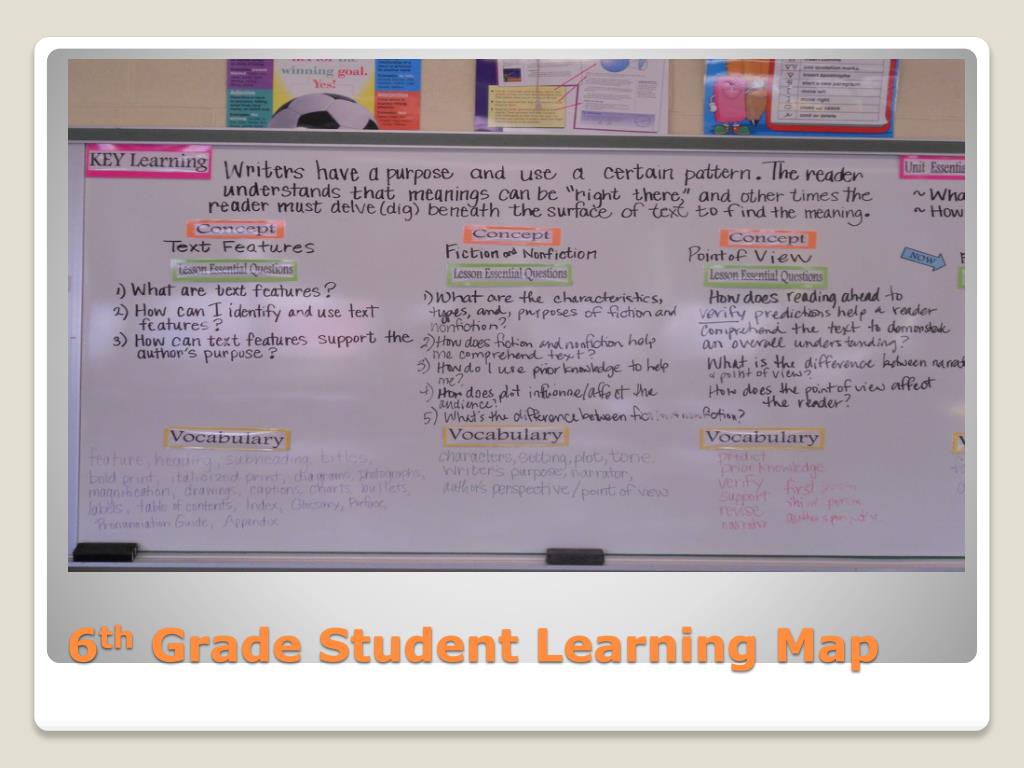 winning goal.
Yes!
KEY Learning
Writers have a purpose and use a certain pattern. The reader
understands that meanings can be "right there," and other times the
reader must delve (dig) beneath the surface of text to find the meaning.
Unit Essenti
~ Wha
~ How
Concept
Text Features
Lesson Essential Questions
1) What are text features?
2) How can I identify and use text
features?
3) How can text features support the
author's purpose?
Vocabulary
feature, heading, subheading, titles,
bold print, italicized print, diagrams, photographs,
magnification, drawings, captions, charts, bullets,
labels, table of contents, Index, Glossary, Preface,
Pronunciation Guide, Appendix
Concept
Fiction and Nonfiction
Lesson Essential Questions
1) What are the characteristics,
types, and, purposes of fiction and
nonfiction?
2) How does fiction and nonfiction help
me comprehend text?
3) How do I use prior knowledge to help
me?
4) How does plot the
audience?
5) What's the difference between
Vocabulary
characters, setting, plot, tone.
writer's purpose, narrator,
author's perspective/point of view
Concept
Point of View
Lesson Essential Questions
How does reading ahead to
verify predictions help a reader
comprehend the text to demonstrate
an overall understanding?
What is the difference between narrat
point of view?
How does the point of view affect
the reader?
NOW
Vocabulary
predict
prior knowledge
verify first person
support third person
revise
narrator
6th Grade Student Learning Map